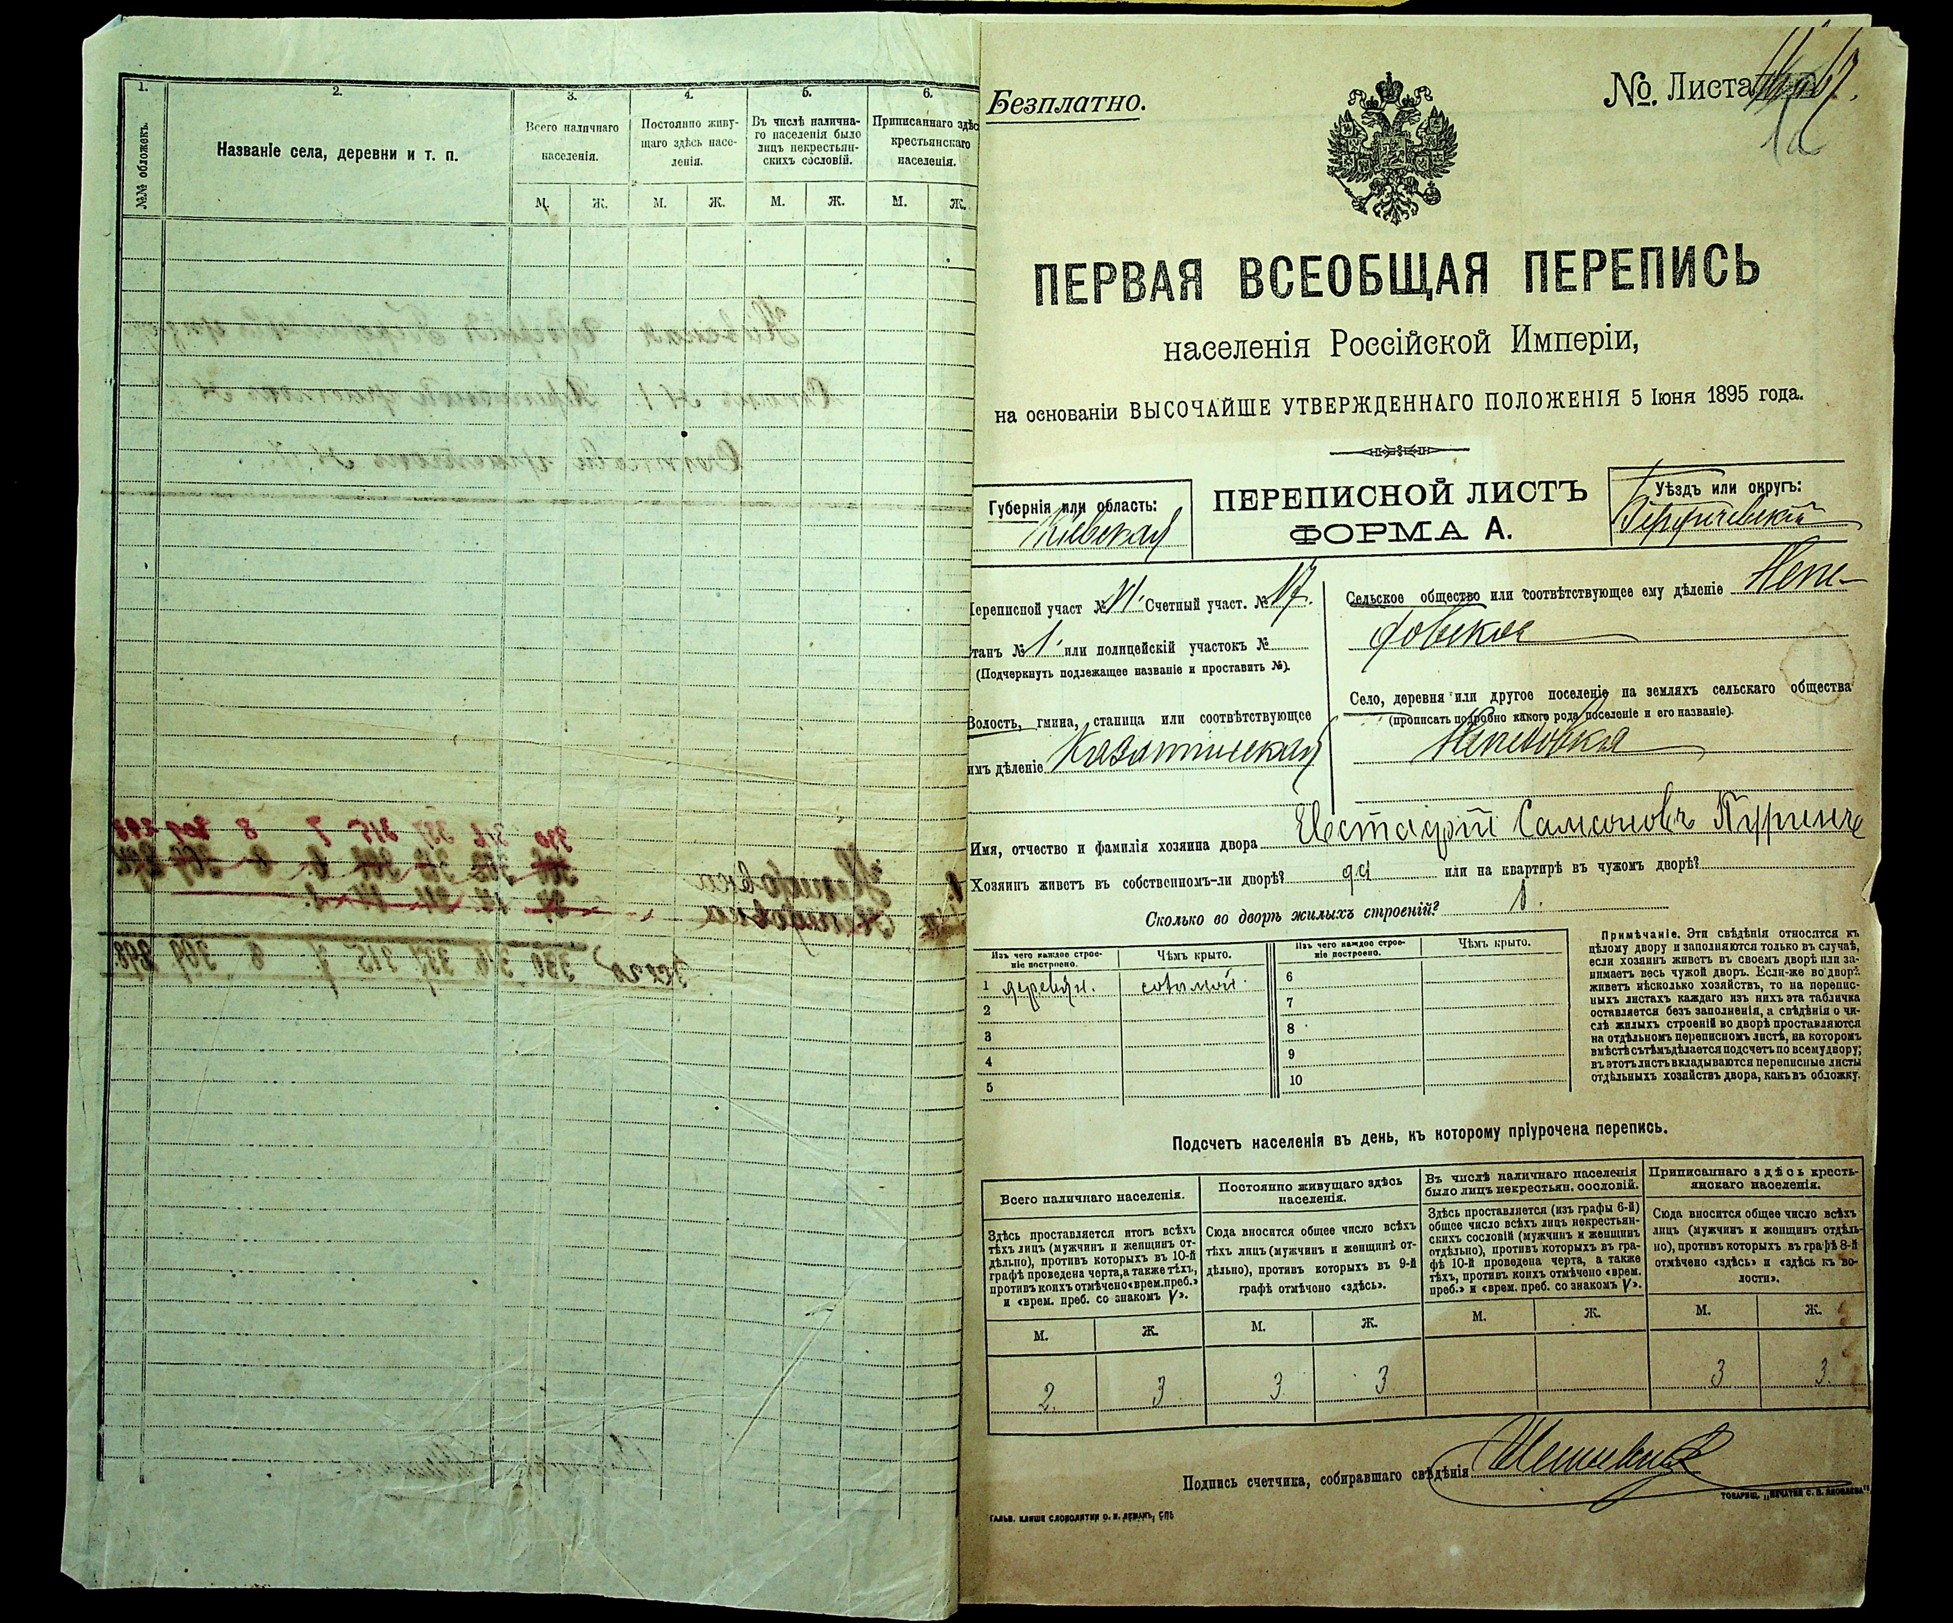 1.
2.
3.
4.
5.
6.
№№ обложекъ.
Названіе села, деревни и т. п.
Всего наличнаго
населенія.
Постоянно живу-
щаго здѣсь насе-
ленія.
Въ числѣ налична-
го населенія было
лицъ некрестьян-
скихъ сословій.
Приписаннаго здѣс
крестьянскаго
населенія.
М. Ж. М. Ж. М. Ж. М. Ж.
Безплатно.
№. Листа
1а
ПЕРВАЯ ВСЕОБЩАЯ ПЕРЕПИСЬ
населенія Россійской Имперіи,
на основаніи ВЫСОЧАЙШЕ УТВЕРЖДЕННАГО ПОЛОЖЕНІЯ 5 Іюня 1895 года.
Губернія или область:
Кіевская
ПЕРЕПИСНОЙ ЛИСТЪ
ФОРМА А.
Уѣздъ или округъ:
Бердичевскій
Переписной участ № 1. Счетный участ. № 17.
танъ № 1. или полицейскій участокъ №
(Подчеркнуть подлежащее названіе и проставить №).
Волость, гмина, станица или соотвѣтствующее
имъ дѣленіе Казатинская
Сельское общество или соотвѣтствующее ему дѣленіе Непе-
довское
Село, деревня или другое поселеніе на земляхъ сельскаго общества
(прописать подробно какого рода поселеніе и его названіе).
Имя, отчество и фамилія хозяина двора Евстафій Самсоновъ
Хозяинъ живетъ въ собственномъ-ли дворѣ? да или на квартирѣ въ чужомъ дворѣ?
Сколько во дворѣ жилыхъ строеній? 1.
Изъ чего каждое строе-
ніе построено.
Чѣмъ крыто.
Изъ чего каждое строе-
ніе построено.
Чѣмъ крыто.
1 деревян. соломой 6
2 7
3 8
4 9
5 10
Примѣчаніе. Эти свѣдѣнія относятся къ
цѣлому двору и заполняются только въ случаѣ,
если хозяинъ живетъ въ своемъ дворѣ или за-
нимаетъ весь чужой дворъ. Если-же во дворѣ
живетъ нѣсколько хозяйствъ, то на перепис-
ныхъ листахъ каждаго изъ нихъ эта табличка
оставляется безъ заполненія, а свѣдѣнія о чи-
слѣ жилыхъ строеній во дворѣ проставляются
на отдѣльномъ переписномъ листѣ, на которомъ
вмѣстѣ съ тѣмъ дѣлается подсчетъ по всему двору;
въ этотъ листъ вкладываются переписные листы
отдѣльныхъ хозяйствъ двора, какъ въ обложку.
Подсчетъ населенія въ день, къ которому пріурочена перепись.
Всего наличнаго населенія.
Здѣсь проставляется итогъ всѣхъ
тѣхъ лицъ (мужчинъ и женщинъ от-
дѣльно), противъ которыхъ въ 10-й
графѣ проведена черта, а также тѣхъ,
противъ коихъ отмѣчено «врем. преб.»
и «врем. преб. со знакомъ V».
Постоянно живущаго здѣсь
населенія.
Сюда вносится общее число всѣхъ
тѣхъ лицъ (мужчинъ и женщинъ от-
дѣльно), противъ которыхъ въ 9-й
графѣ отмѣчено «здѣсь».
Въ числѣ наличнаго населенія
было лицъ некрестьян. сословій.
Здѣсь проставляется (изъ графы 6-й)
общее число всѣхъ лицъ некрестьян-
скихъ сословій (мужчинъ и женщинъ
отдѣльно), противъ которыхъ въ гра-
фѣ 10-й проведена черта, а также
тѣхъ, противъ коихъ отмѣчено «врем.
преб.» и «врем. преб. со знакомъ V».
Приписаннаго здѣсь кресть-
янскаго населенія.
Сюда вносится общее число всѣхъ
лицъ (мужчинъ и женщинъ отдѣль-
но), противъ которыхъ въ графѣ 8-й
отмѣчено «здѣсь» и «здѣсь къ во-
лости».
М. Ж. М. Ж. М. Ж. М. Ж.
2. 3 3 3 3 3.
Подпись счетчика, собиравшаго свѣдѣнія
ГАЛЬВ. КЛИШЕ СЛОВОЛИТНИ О. И. ЛЕМАНЪ, СПБ
ТОВАРИЩ. „ПЕЧАТНЯ С. П. ЯКОВЛЕВА"